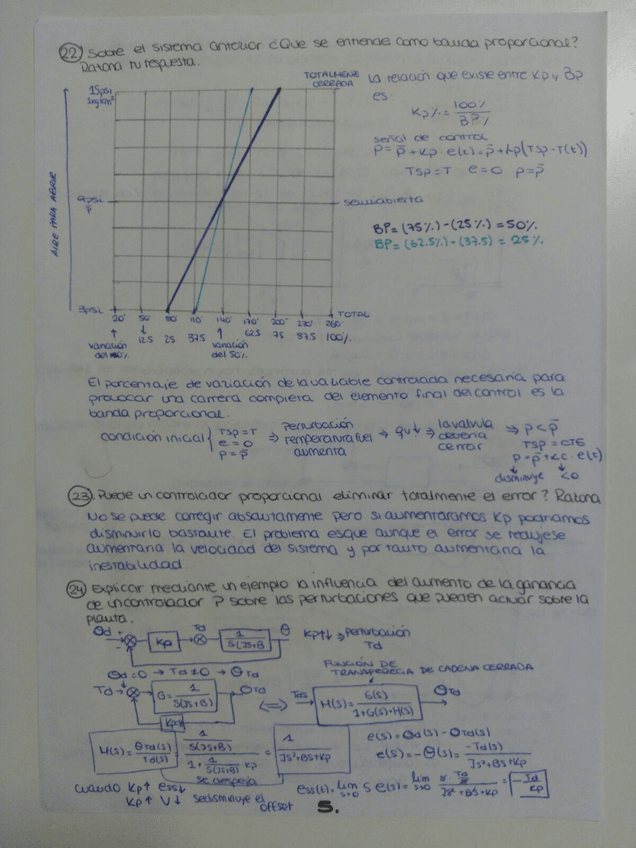 22 Sobre el sistema anterior ¿Que se entiende como banda proporcional?
Razona tu respuesta.
TOTALMENTE CERRADA
15psi
1kg/cm²
AIRE PARA ABRIR
9psi
p̄
semiabierta
3psi
20° 50 80° 110° 140° 170° 200° 230° 260° TOTAL
12.5 25 37.5 62.5 75 87.5 100%
variación
variación del 50%
La relación que existe entre Kp y Bp
es:
Kp% = 100% / BP%
señal de control
p = p̄ + Kp · e(t) = p̄ + Kp(Tsp - T(t))
Tsp = T e = 0 p = p̄
BP = (75%) - (25%) = 50%
BP = (62.5%) - (37.5) = 25%
El porcentaje de variación de la variable controlada necesaria para
provocar una carrera completa del elemento final del control es la
banda proporcional.
condición inicial { Tsp = T e = 0 p = p̄ ⇒ Perturbación temperatura fuel aumenta ⇒ qv↓ ⇒ la valvula deberia cerrar ⇒ p < p̄
Tsp = CTE
p = p̄ + Kc · e(t)
disminuye <0
23 ¿Puede un controlador proporcional eliminar totalmente el error? Razona
No se puede corregir absolutamente pero si aumentaramos Kp podriamos
disminuirlo bastante. El problema es que aunque el error se redujese
aumentaria la velocidad del sistema y por tanto aumentaria la
inestabilidad.
24 Explicar mediante un ejemplo la influencia del aumento de la ganancia
de un controlador P sobre las perturbaciones que pueden actuar sobre la
planta.
θd + - Kp Td 1 / S(JS+B) θ Kp↑↓ ⇒ Perturbación Td
θd = 0 → Td ≠ 0 → θTd
FUNCIÓN DE TRANSFERECIA DE CADENA CERRADA
Td → G = 1 / S(JS+B) θTd ⇔ M(s) = G(s) / 1+G(s)·H(s) θTd
Kp
M(s) = θTd(s) / Td(s) = 1/S(JS+B) / 1 + 1/S(JS+B) Kp = 1 / JS²+BS+Kp
se despeja
e(s) = θd(s) - θTd(s)
e(s) = -θ(s) = -Td(s) / JS²+BS+Kp
cuando Kp↑ ess↓
Kp↑ V↓ se disminuye el offset
ess(t) = lim s→0 S e(s) = lim s→0 = -Td / Kp
5.